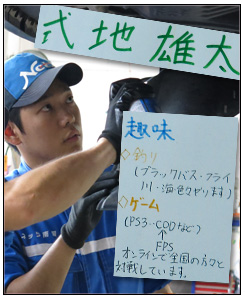 式地雄太
趣味
◇釣り
(ブラックバス・フライ
川・海色々やります)
◇ゲーム
(PS3…CODなど)
↑
FPS
オンラインで全国の方々と
対戦しています。